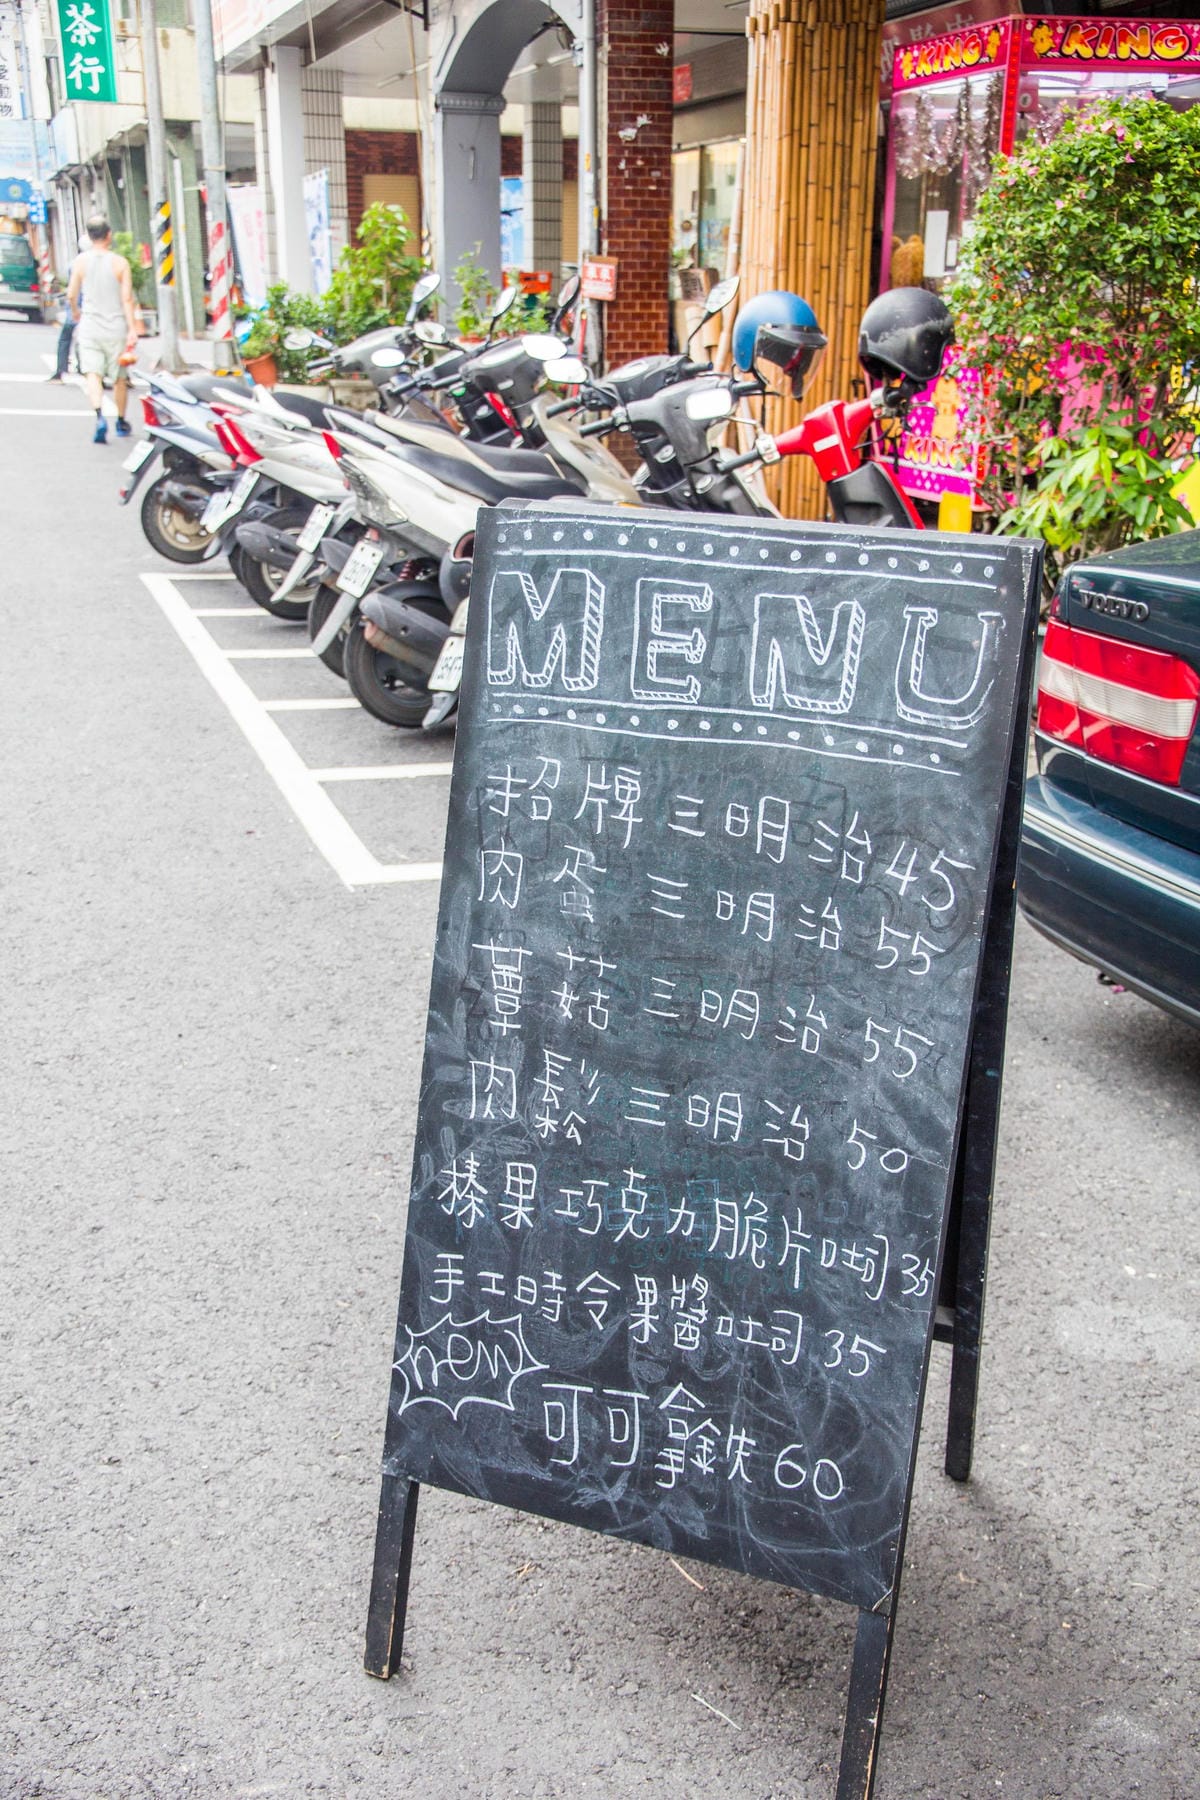 茶行
KING
KING
KING
VOLVO
MENU
招牌三明治 45
肉蛋三明治 55
蕈菇三明治 55
肉鬆三明治 50
榛果巧克力脆片吐司 35
手工時令果醬吐司 35
new
可可拿鉄 60